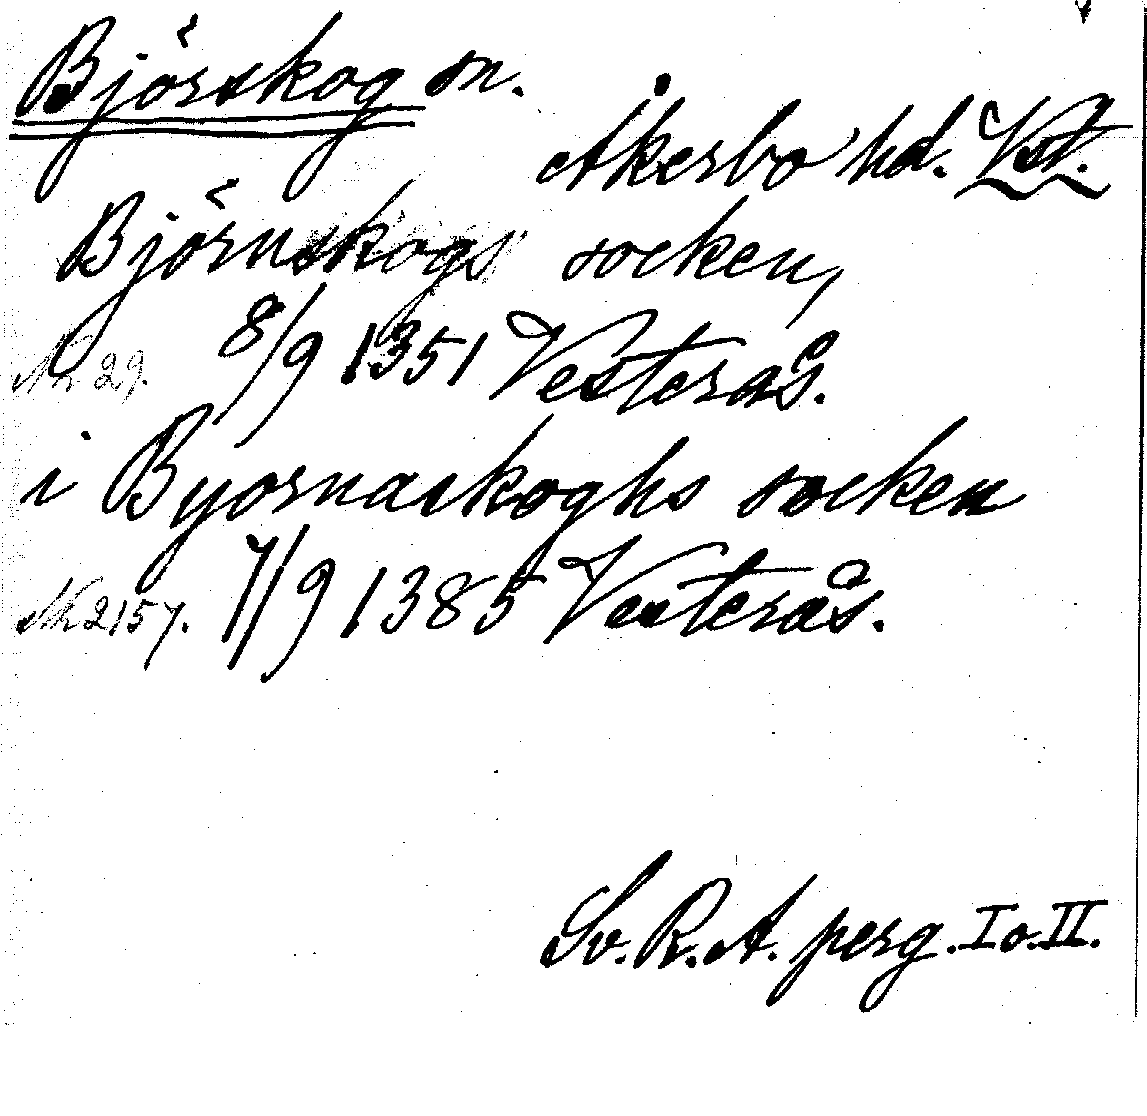 Björskog sn.
Åkerbo hd. Vstl.
Björnskogs socken,
Nr 29. 8/9 1351 Vesterås.
i Byornaskoghs socken
Nr 2157. 7/9 1385 Vesterås.
Sv. R. A. perg. I o. II.